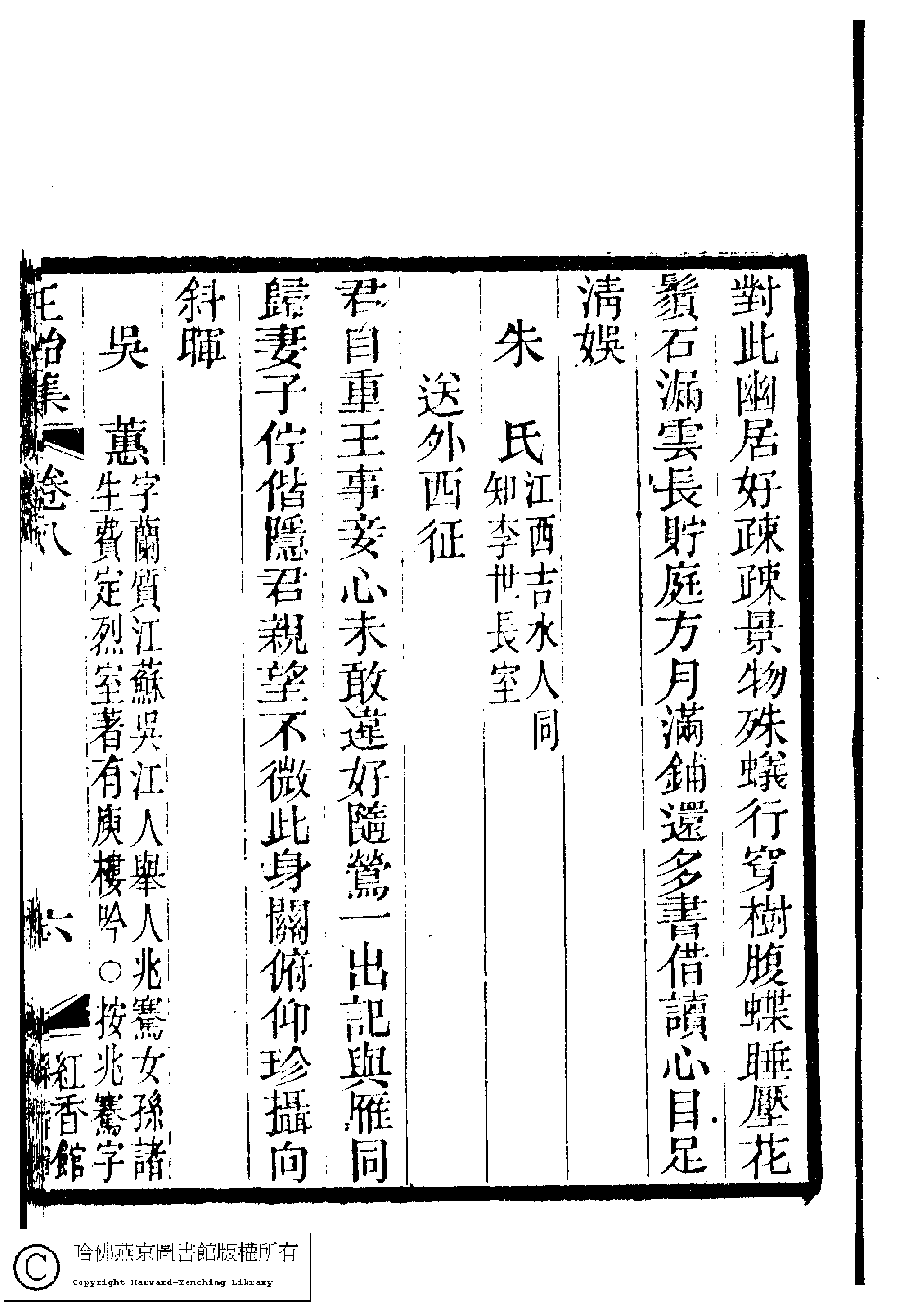 對此幽居好疎疎景物殊蟻行穿樹腹蝶睡壓花
鬚石漏雲長貯庭方月滿鋪還多書借讀心目足
淸娛
朱　氏江西吉水人同
知李世長室
送外西征
君自重王事妾心未敢違好隨鶯一出記與雁同
歸妻子佇偕隱君親望不微此身關俯仰珍攝向
斜暉
吳　蕙字蘭質江蘇吳江人舉人兆騫女孫諸
生費定烈室著有庚樓吟○按兆騫字
正始集　卷八　六　紅香館
哈佛燕京圖書館版權所有
Copyright Harvard-Yenching Library